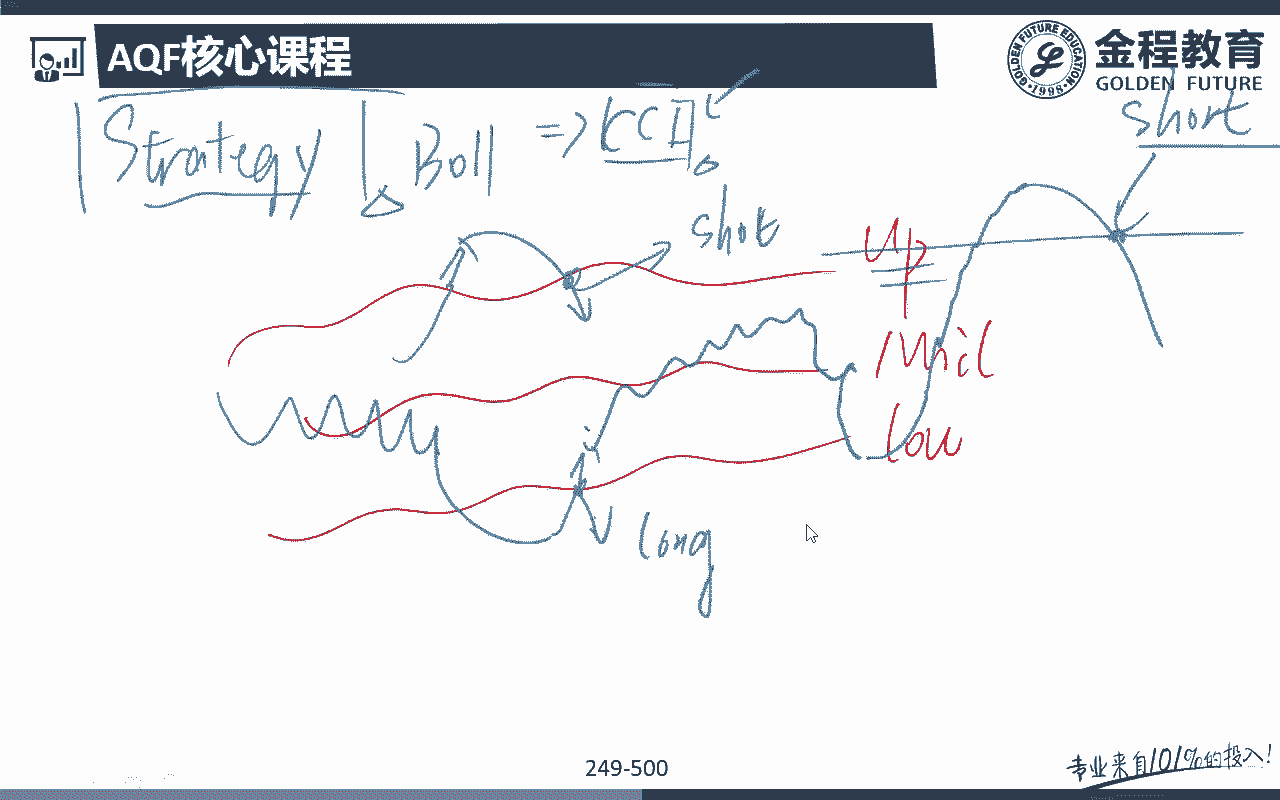 AQF核心课程
GOLDEN FUTURE EDUCATION
1998
金程教育
GOLDEN FUTURE
Strategy Boll => CCI
short
shot
up
Mid
low
long
249-500
专业来自101%的投入!